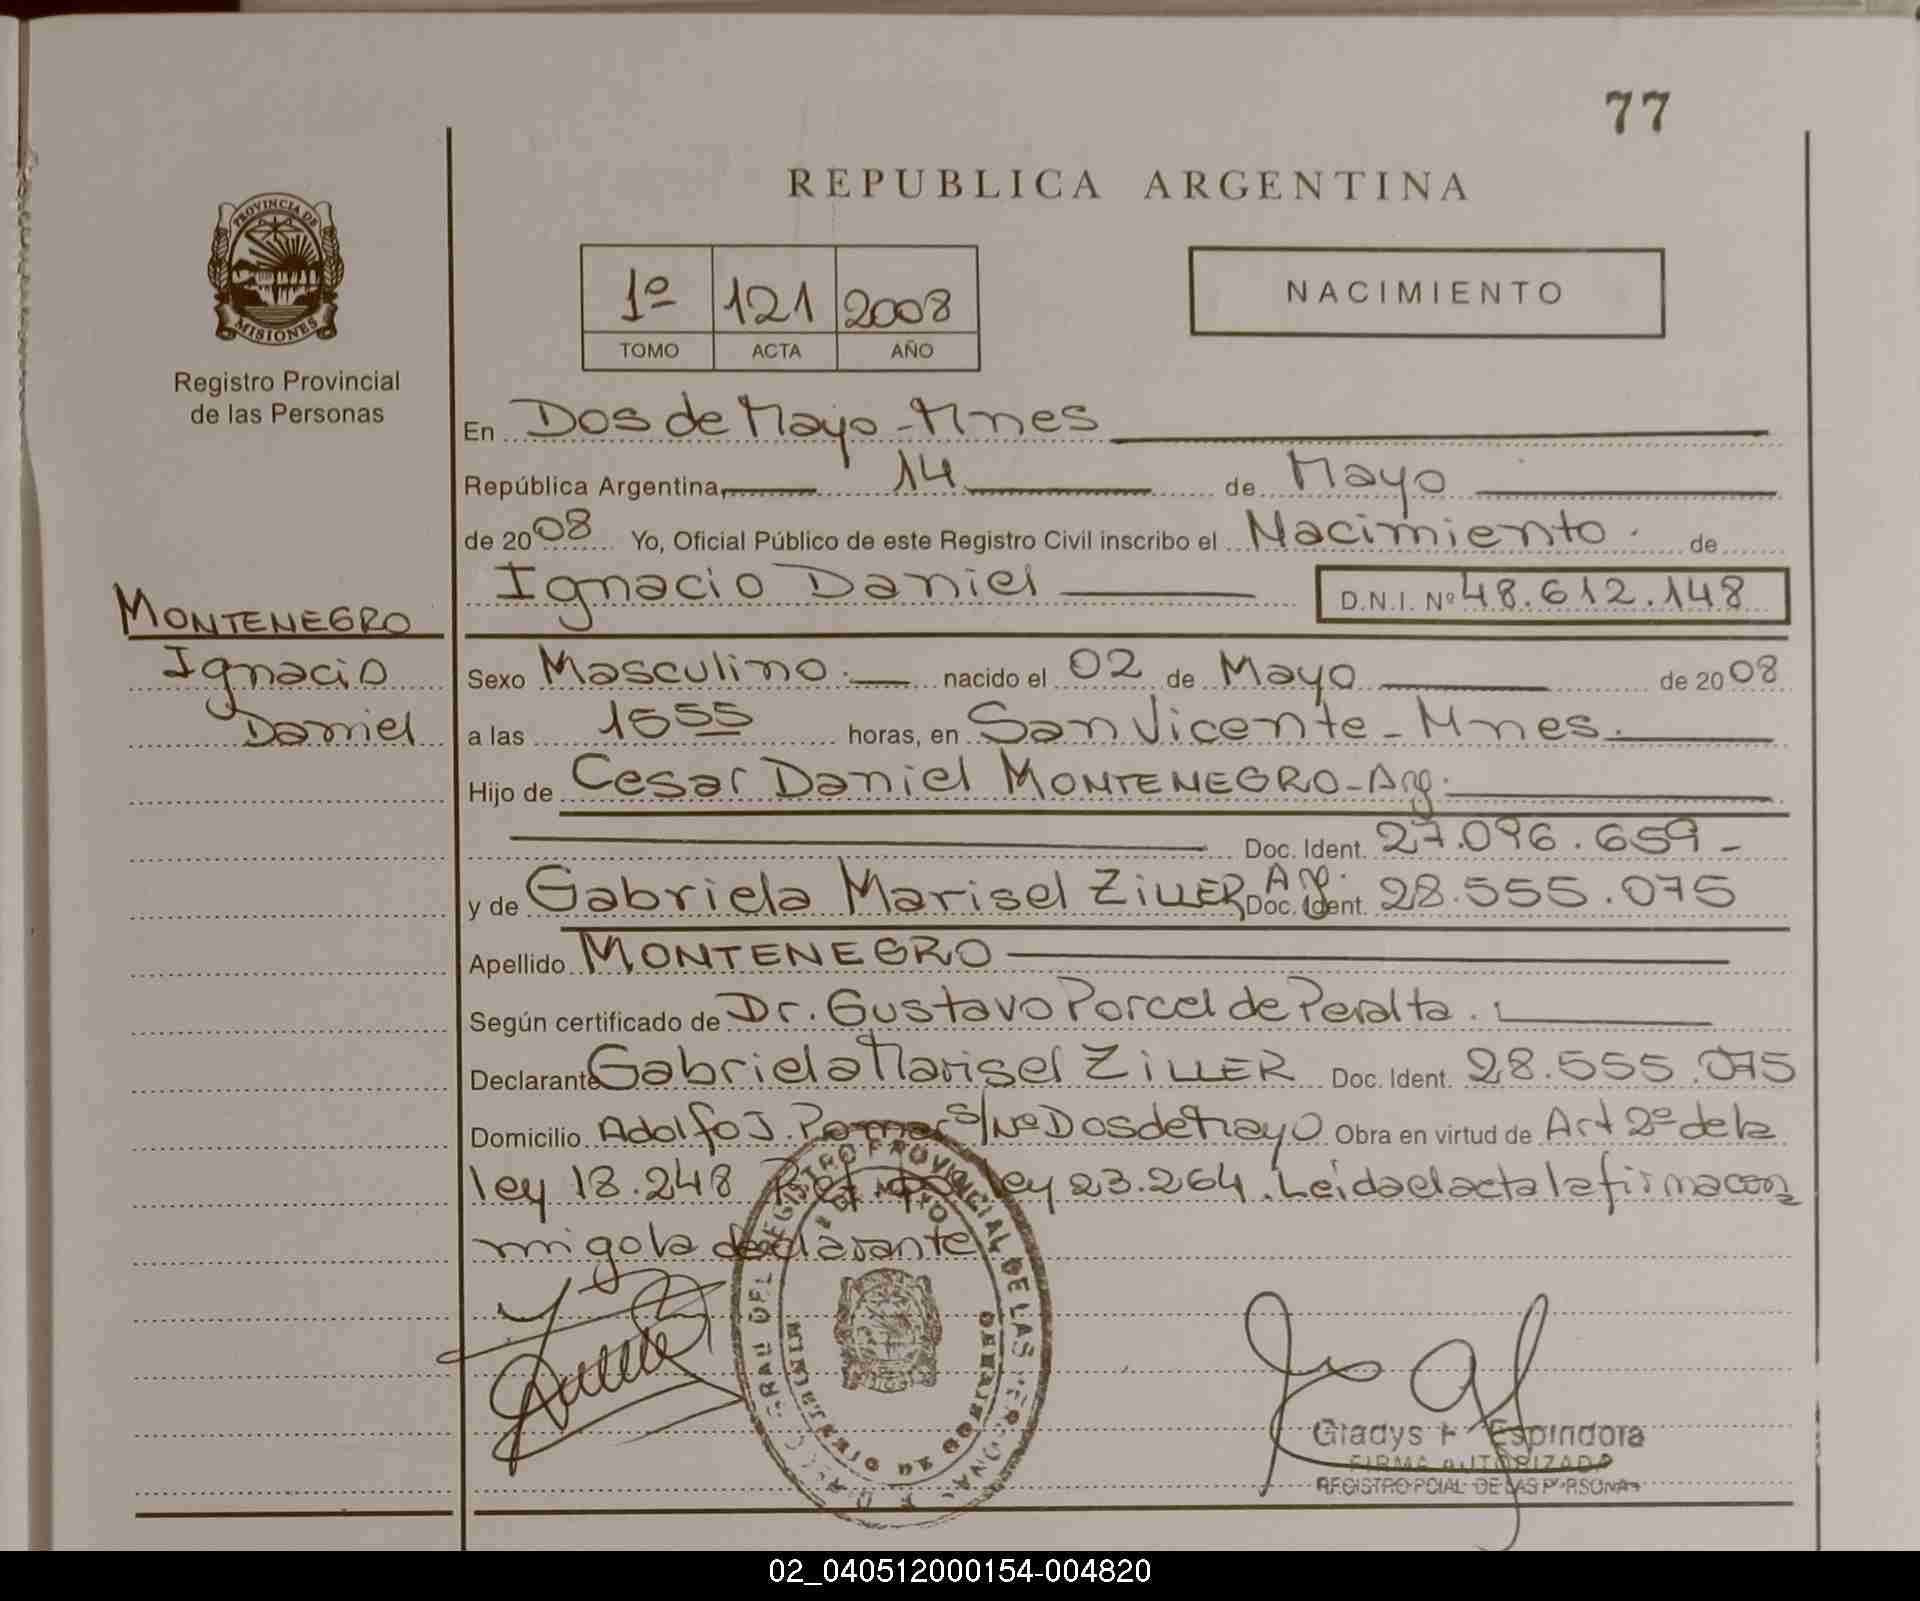 77
REPUBLICA ARGENTINA
PROVINCIA DE
MISIONES
Registro Provincial
de las Personas
1º 121 2008
TOMO ACTA AÑO
NACIMIENTO
En Dos de Mayo - Mnes
República Argentina, 14 de Mayo
de 2008 Yo, Oficial Público de este Registro Civil inscribo el Nacimiento. de
Ignacio Daniel D.N.I. Nº 48.612.148
MONTENEGRO
Ignacio
Daniel
Sexo Masculino. nacido el 02 de Mayo de 2008
a las 1555 horas, en San Vicente - Mnes.
Hijo de Cesar Daniel MONTENEGRO - Arg.
Doc. Ident. 27.096.659 -
y de Gabriela Marisel ZILLER Arg. Doc. Ident. 28.555.075
Apellido MONTENEGRO
Según certificado de Dr. Gustavo Porcel de Peralta.
Declarante Gabriela Marisel ZILLER Doc. Ident. 28.555.075
Domicilio Adolfo J. Pomar S/Nº Dos de Mayo Obra en virtud de Art 2º de la
ley 18.248 Ref. ley 23.264. Leída el acta la firma con
migo la declarante
REGISTRO PROVINCIAL DE LAS
Gladys Espindora
FIRMA AUTORIZADA
REGISTRO PCIAL DE LAS PERSONAS
02_040512000154-004820